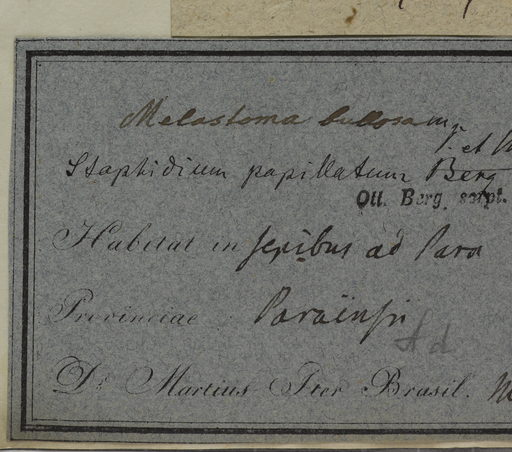 Melastoma bullosa m.
et
Staphidium papillatum Berg
Ott. Berg. scrpt.
Habitat in sepibus ad Para
Provinciae Paraënsi
Ad
Dr. Martius Iter Brasil.